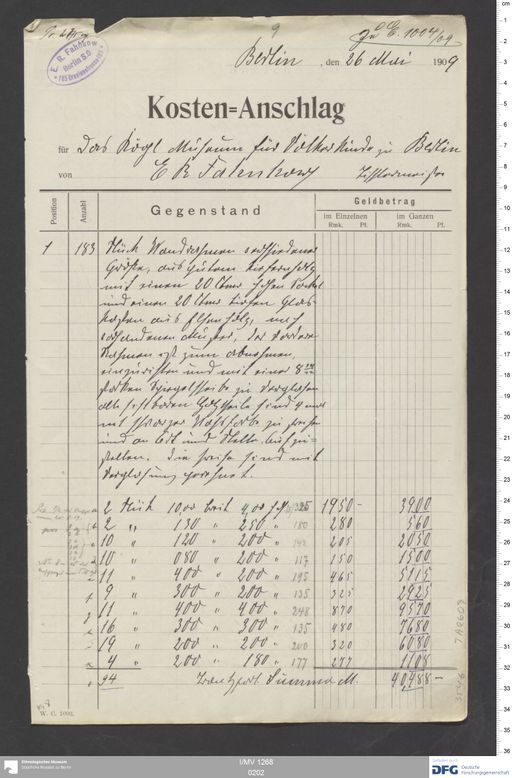 9
Zu E. 1004/09
E. R. Fahnkow
Berlin S.O
Berlin, den 26 Mai 1909
Kosten=Anschlag
für Das Kögl Museum für Völkerkunde zu Berlin
von E R Fahnkow Tischlermeister
Position Anzahl Gegenstand Geldbetrag
im Einzelnen im Ganzen
Rmk. Pf. Rmk. Pf.
1 183 Stück Wandrahmen verschiedener
Größe, aus gutem Kiefernholz
mit einem 20 Ctmr hohen Sockel
und einem 20 Ctmr tiefen Glas
kasten aus Elsenholz, nach
vorhandenem Muster, der vordere
Rahmen ist zum abnehmen,
einzurichten und mit einer 8 mm
starken Spiegelscheibe zu verglasen
alle sichtbaren Holztheile sind 4 mal
mit schwarzer Wachsfarbe zu streichen
und an Ort und Stelle aufzu=
stellen. Die Preise sind mit
Verglasung gerechnet.
2 Stück 10,00 breit 4,00 h M 325 1950 - 3900
2 " 130 " 250 " 180 280 560
10 " 120 " 200 " 142 205 2050
10 " 080 " 200 " 117 150 1500
11 " 400 " 200 " 195 465 5115
9 " 300 " 200 " 135 325 2925
11 " 400 " 400 " 248 870 9570
16 " 300 " 300 " 135 480 7680
19 " 200 " 200 " 200 320 6080
4 " 200 " 180 " 177 277 1108
94 Summa M. 40,488 -
W. G. 1003.
Ethnologisches Museum
Staatliche Museen zu Berlin
I/MV 1268
0202
DFG Deutsche
Forschungsgemeinschaft